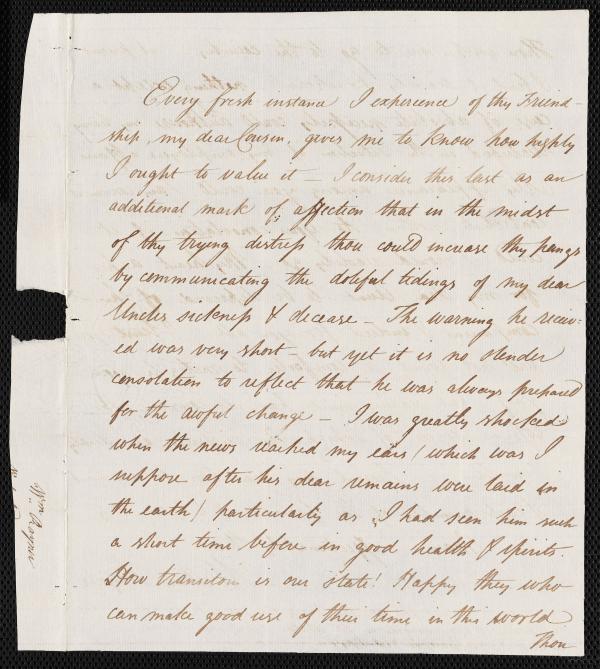 Every fresh instance I experience of thy Friend-
ship, my dear Cousin, gives me to know how highly
I ought to value it – I consider this last as an
additional mark of affection that in the midst
of thy trying distress thou could increase thy pangs
by communicating the doleful tidings of my dear
Uncles sickness & decease – The warning he receiv-
ed was very short – but yet it is no slender
consolation to reflect that he was always prepared
for the awful change – I was greatly shocked
when the news reached my ears (which was I
suppose after his dear remains were laid in
the earth) particularly as I had seen him such
a short time before in good health & spirits.
How transitory is our state! Happy they who
can make good use of their time in this world
Thou
Wm